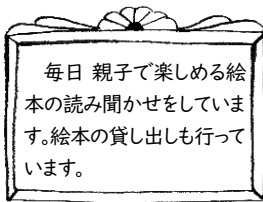 毎日 親子で楽しめる絵
本の読み聞かせをしていま
す。絵本の貸し出しも行って
います。